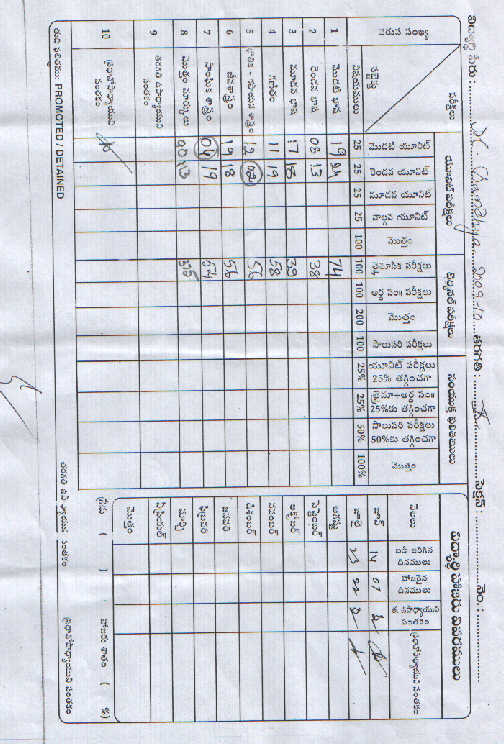 విద్యార్థి పేరు : 2009-10 తరగతి : సెక్షన్ : నెం. :
వరుస సంఖ్య
పరీక్షలు
సబ్జెక్టు
యూనిట్ పరీక్షలు
టెర్మినల్ పరీక్షలు
సంయుక్త ఫలితములు
మొదటి యూనిట్
రెండవ యూనిట్
మూడవ యూనిట్
నాల్గవ యూనిట్
మొత్తం
త్రైమాసిక పరీక్షలు
అర్థ సం॥ పరీక్షలు
మొత్తం
సాలుసరి పరీక్షలు
యూనిట్ పరీక్షలు 25% తగ్గించగా
త్రైమా-అర్థ సం॥ 25%కు తగ్గించగా
సాలుసరి పరీక్షలు 50%కు తగ్గించగా
మొత్తం
25 25 25 25 100 100 100 200 100 25% 25% 50% 100%
1 మొదటి భాష 19 74
2 రెండవ భాష 08 13 38
3 మూడవ భాష 17 18 39
4 గణితం 11 19 58
5 భౌతిక - రసాయన శాస్త్రం 56
6 జీవశాస్త్రం 19 18 56
7 సాంఘిక శాస్త్రం 19 57
8 మొత్తం మార్కులు
9 తరగతి ఉపాధ్యాయుని సంతకం
10 ప్రధానోపాధ్యాయుని సంతకం
తుది ఫలితము: PROMOTED / DETAINED
విద్యార్థి హాజరు వివరములు
నెలలు
బడి జరిగిన దినములు
హాజరైన దినములు
త. ఉపాధ్యాయుని సంతకం
ప్రధానోపాధ్యాయుని సంతకం
జూన్ 14 07
జూలై 23
ఆగష్టు
సెప్టెంబర్
అక్టోబర్
నవంబర్
డిసెంబర్
జనవరి
ఫిబ్రవరి
మార్చి
ఏప్రియల్
మొత్తం
గ్రేడు ( ) హాజరు శాతం ( %)
తరగతి ఉపాధ్యాయుని సంతకం ప్రధానోపాధ్యాయుని సంతకం